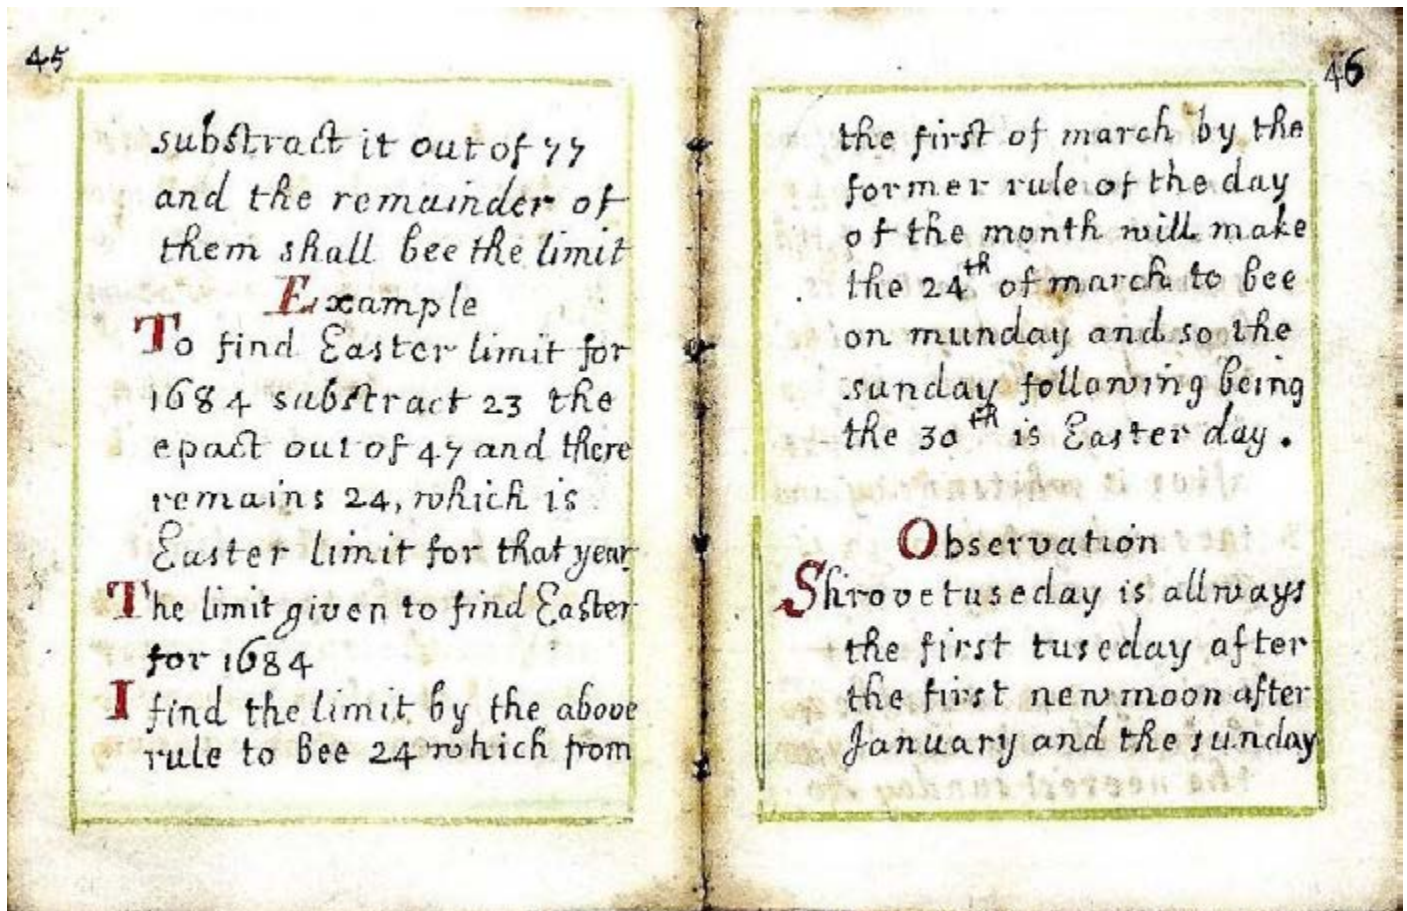 45
substract it out of 77
and the remainder of
them shall bee the limit
Example
To find Easter limit for
1684 substract 23 the
epact out of 47 and there
remains 24, which is
Easter limit for that year
The limit given to find Easter
for 1684
I find the limit by the above
rule to bee 24 which from
46
the first of march by the
former rule of the day
of the month will make
the 24th of march to bee
on munday and so the
sunday following being
the 30th is Easter day.
Observation
Shrovetuseday is allways
the first tuseday after
the first new moon after
January and the sunday